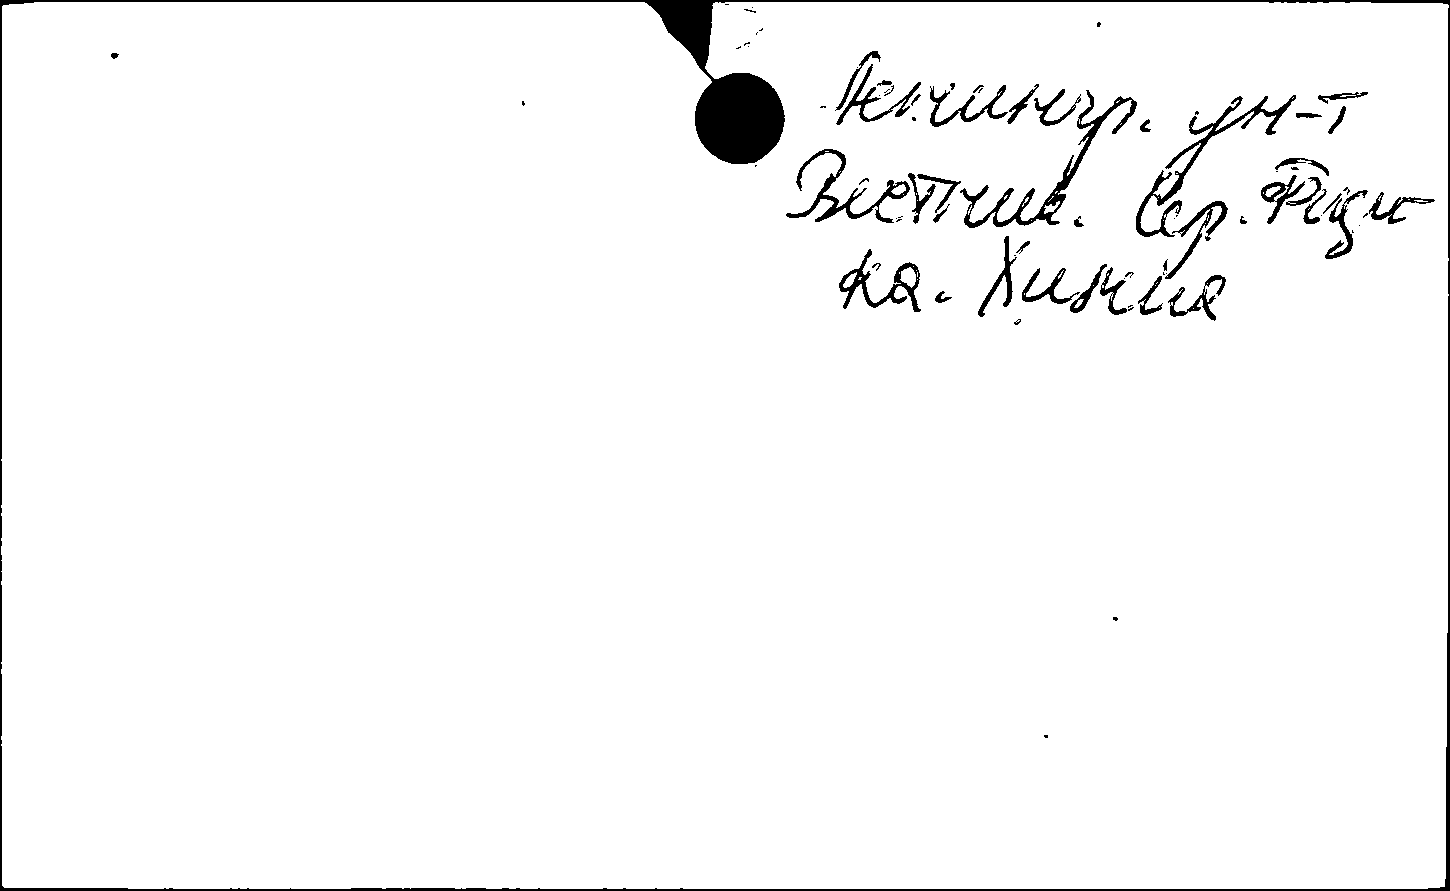 Ленингр. ун-т
Вестник. Сер. Физи
ка. Химия